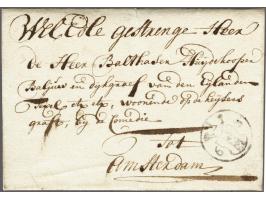 Wel Edle gestrenge Heer
de Heer Balthasar Huydekooper
Baljuw en dykgraef van den Eylanden
Texel etc etc, woonende op de keysers
graft, by de Comedie
Tot
Amsterdam